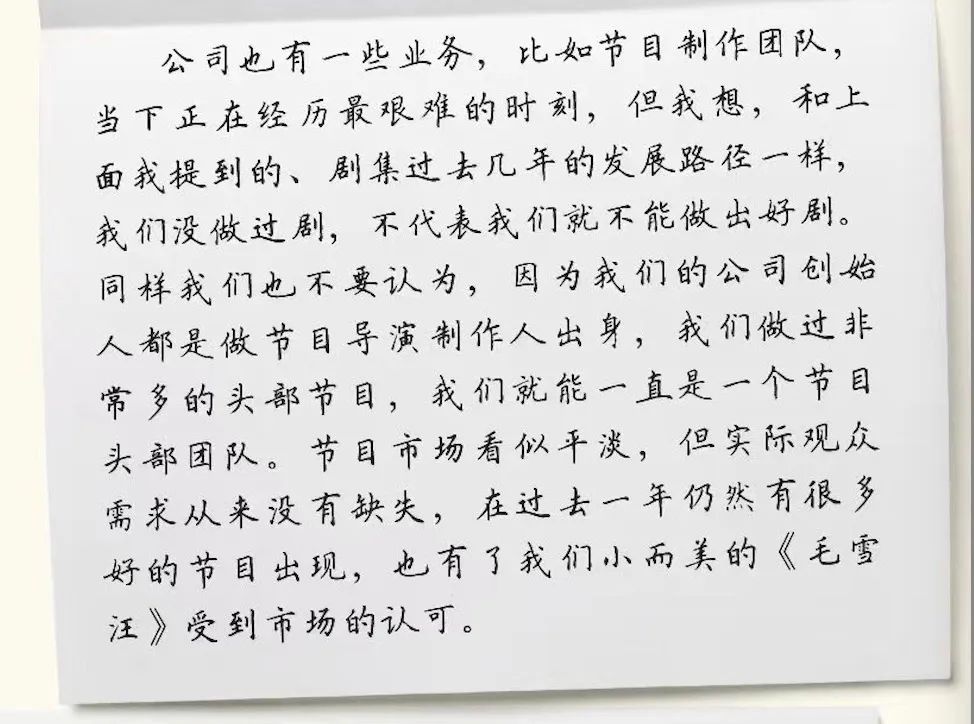 公司也有一些业务，比如节目制作团队，
当下正在经历最艰难的时刻，但我想，和上
面我提到的、剧集过去几年的发展路径一样，
我们没做过剧，不代表我们就不能做出好剧。
同样我们也不要认为，因为我们的公司创始
人都是做节目导演制作人出身，我们做过非
常多的头部节目，我们就能一直是一个节目
头部团队。节目市场看似平淡，但实际观众
需求从来没有缺失，在过去一年仍然有很多
好的节目出现，也有了我们小而美的《毛雪
汪》受到市场的认可。